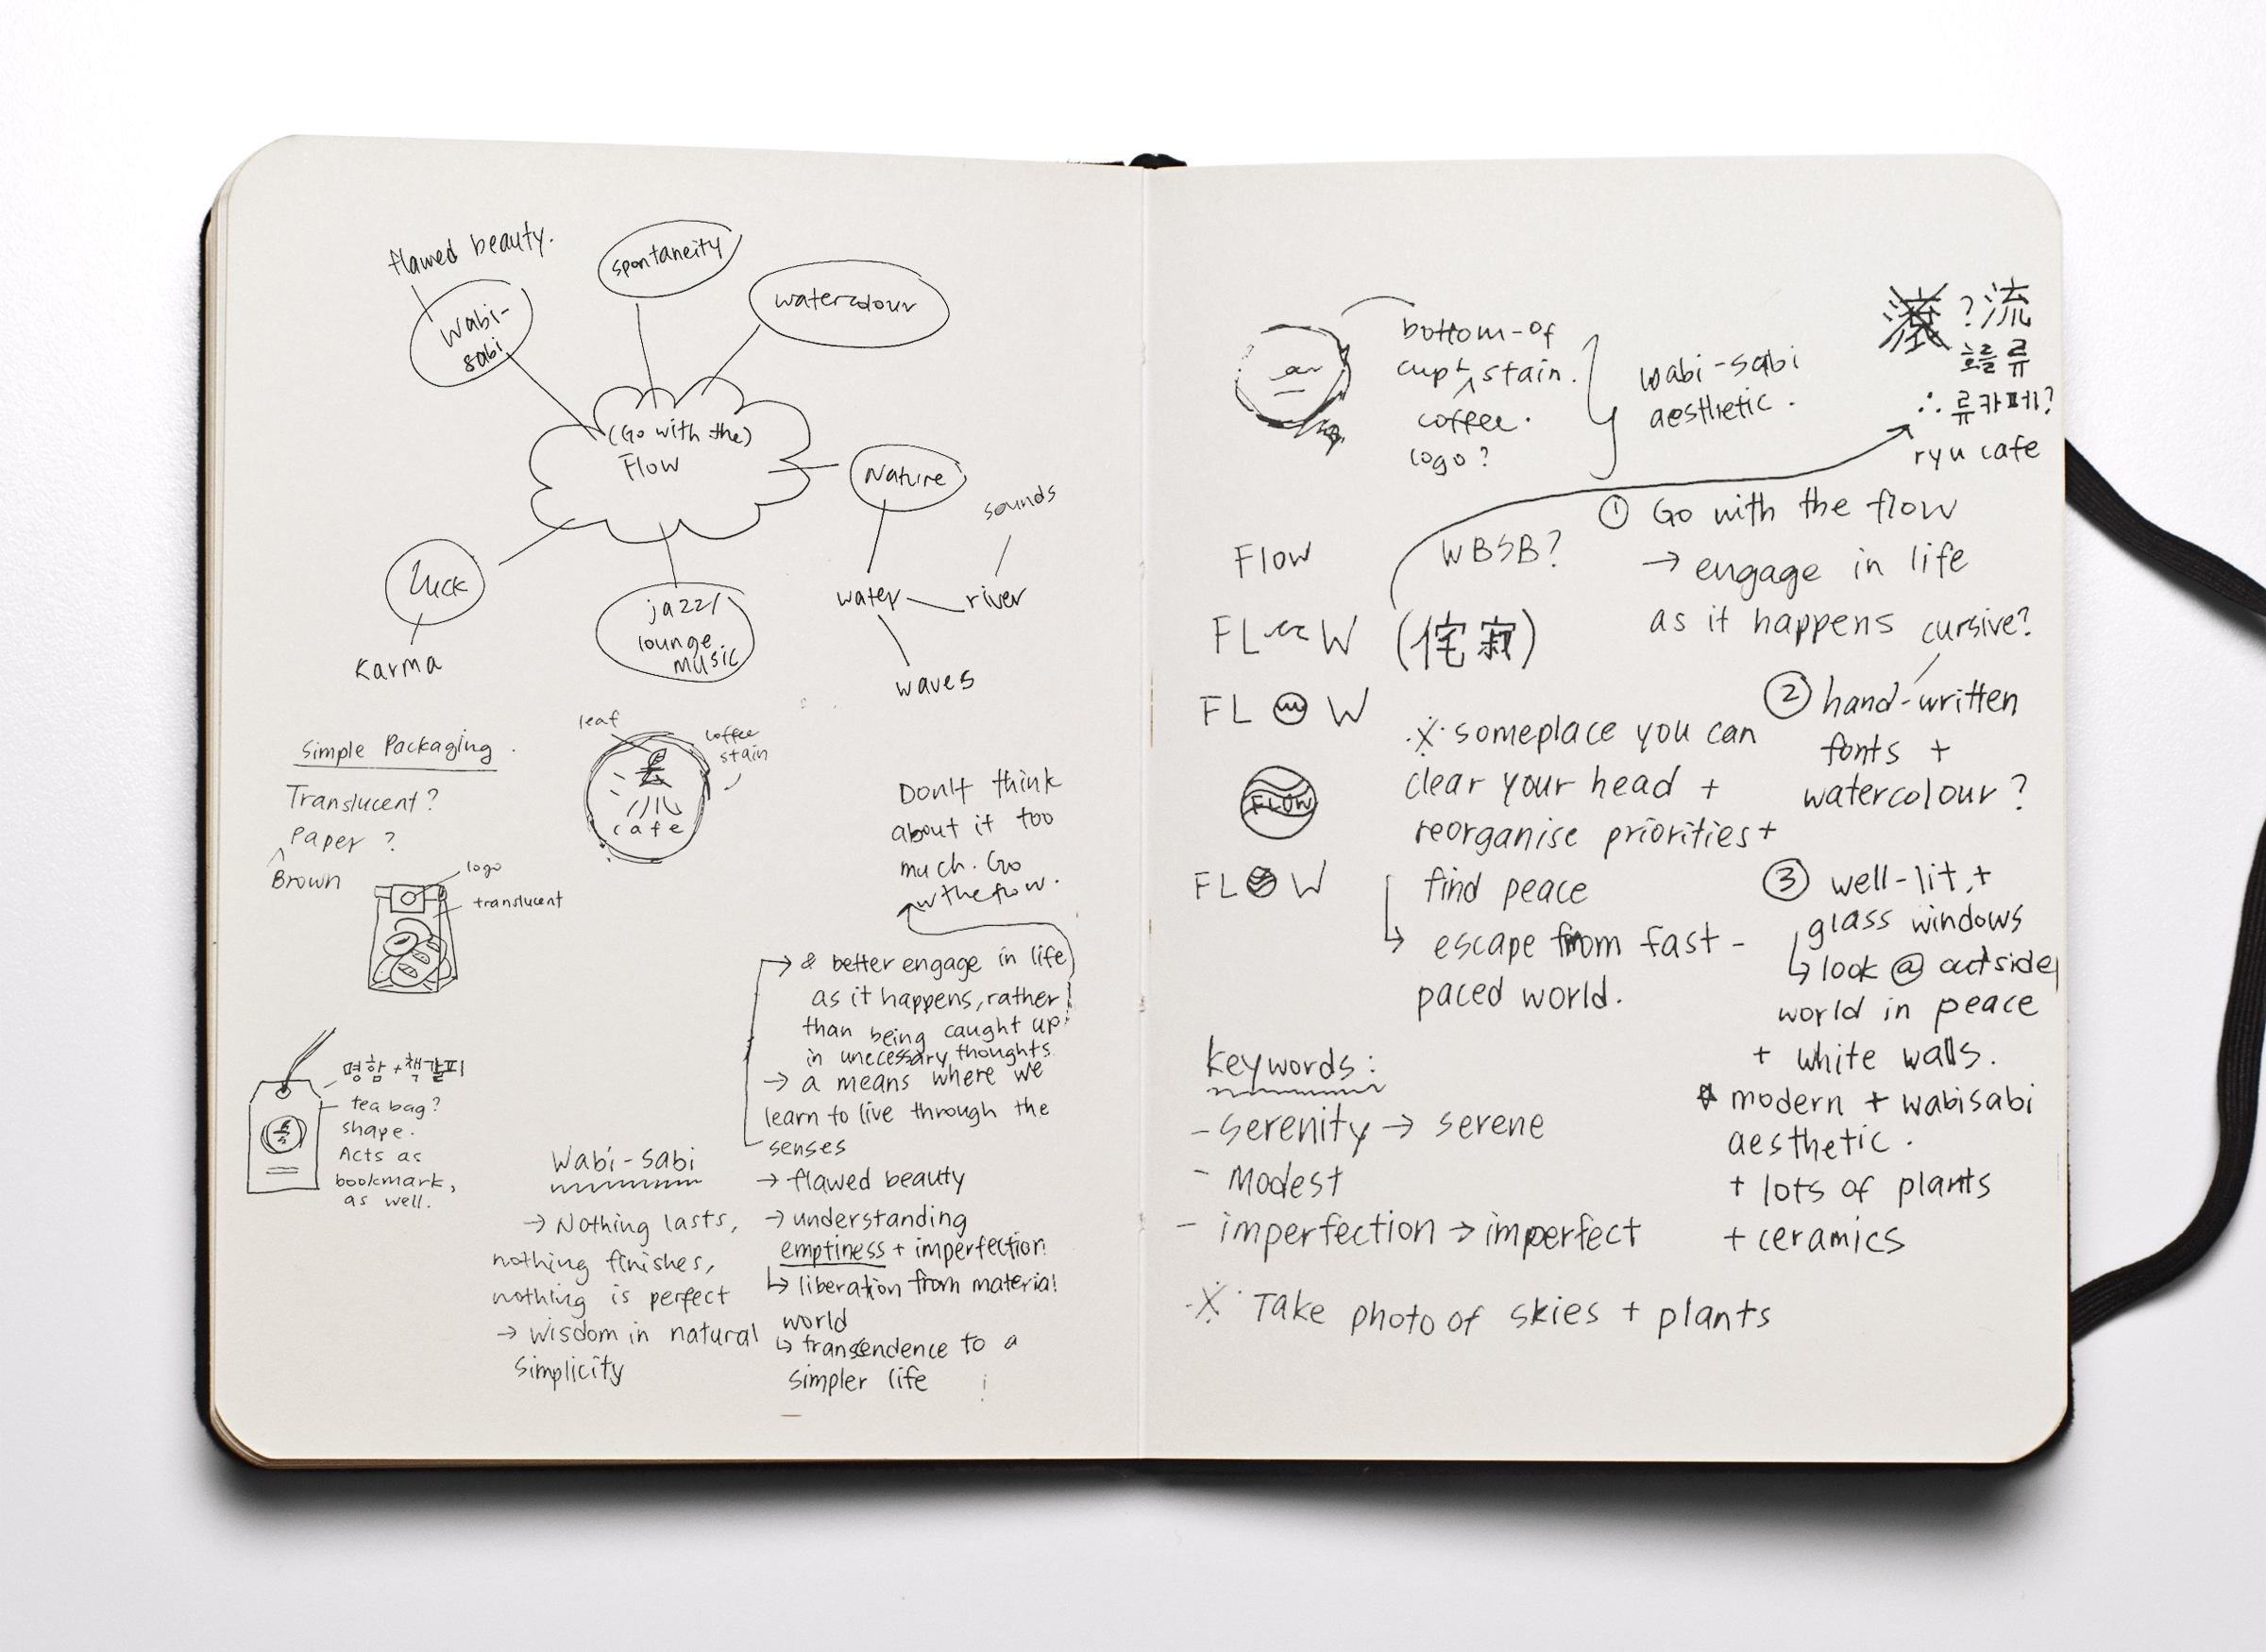 flawed beauty.
Wabi-
sabi
spontaneity
watercolour
(Go with the)
Flow
Nature
sounds
luck
Karma
jazz/
lounge
music
water
river
waves
Simple Packaging.
Translucent?
Paper ?
Brown
logo
translucent
leaf
coffee
stain
cafe
Don't think
about it too
much. Go
w the flow.
명함+책갈피
tea bag?
shape.
Acts as
bookmark,
as well.
Wabi-sabi
→ Nothing lasts,
nothing finishes,
nothing is perfect
→ wisdom in natural
simplicity
→ & better engage in life
as it happens, rather
than being caught up
in unecessary thoughts
→ a means where we
learn to live through the
senses
→ flawed beauty
→ understanding
emptiness + imperfection
↳ liberation from material
world
↳ transcendence to a
simpler life
bottom-of
cup stain.
coffee.
logo?
wabi-sabi
aesthetic.
?流
흐를 류
∴ 류카페?
ryu cafe
Flow
FL W
FL W
FLOW
FL W
WBSB?
(侘寂)
① Go with the flow
→ engage in life
as it happens
cursive?
② hand-written
fonts +
watercolour?
※ someplace you can
clear your head +
reorganise priorities +
find peace
↳ escape from fast-
paced world.
③ well-lit, +
glass windows
↳ look @ outside
world in peace
+ white walls.
☆ modern + wabisabi
aesthetic.
+ lots of plants
+ ceramics
Keywords:
- serenity → serene
- Modest
- imperfection → imperfect
※ Take photo of skies + plants